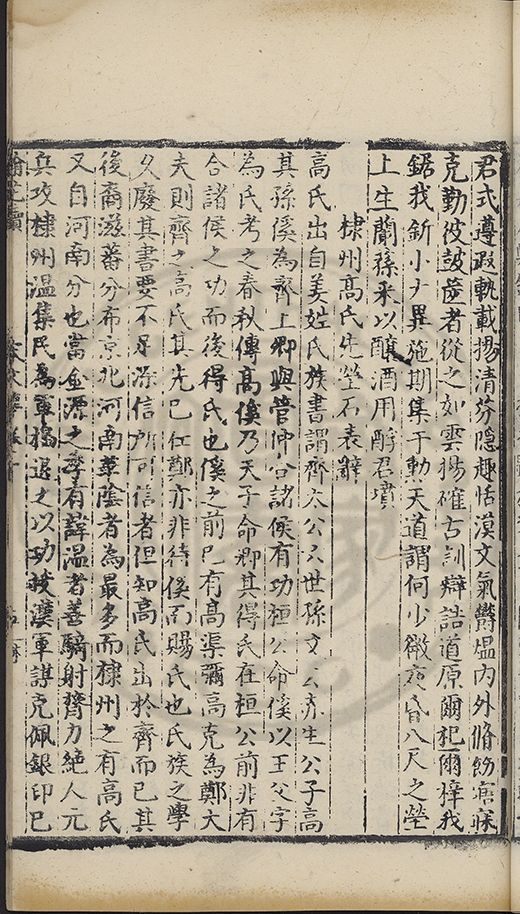 君式遵遐軌載揚清芬隐趣恬漠文氣欝煴内外脩飭
克勤彼鼓篋者從之如雲揚確古訓辯誥道原爾杞爾梓我
鋸我釿小大異施期集于勲天道謂何少微夜昏八尺之塋
上生蘭孫采以釀酒用酹君墳
棣州高氏先塋石表辭
高氏出自姜姓氏族書謂齊太公六世孫文公赤生公子高
其孫傒為齊上卿與管仲合諸侯有功桓公命傒以王父字
為氏考之春秋傳高傒乃天子命卿其得氏在桓公前非有
合諸侯之功而後得氏也傒之前已有高渠彌高克為鄭大
夫則齊之高氏其先已仕鄭亦非待傒而賜氏也氏族之學
久廢其書要不足深信所可信者但知高氏出於齊而已其
後裔滋蕃分布京北河南華蔭者為最多而棣州之有高氏
又自河南分也當金源之季有諱温者善騎射膂力絶人元
兵攻棣州温集民為軍搗退之以功授濮軍謀克佩銀印已